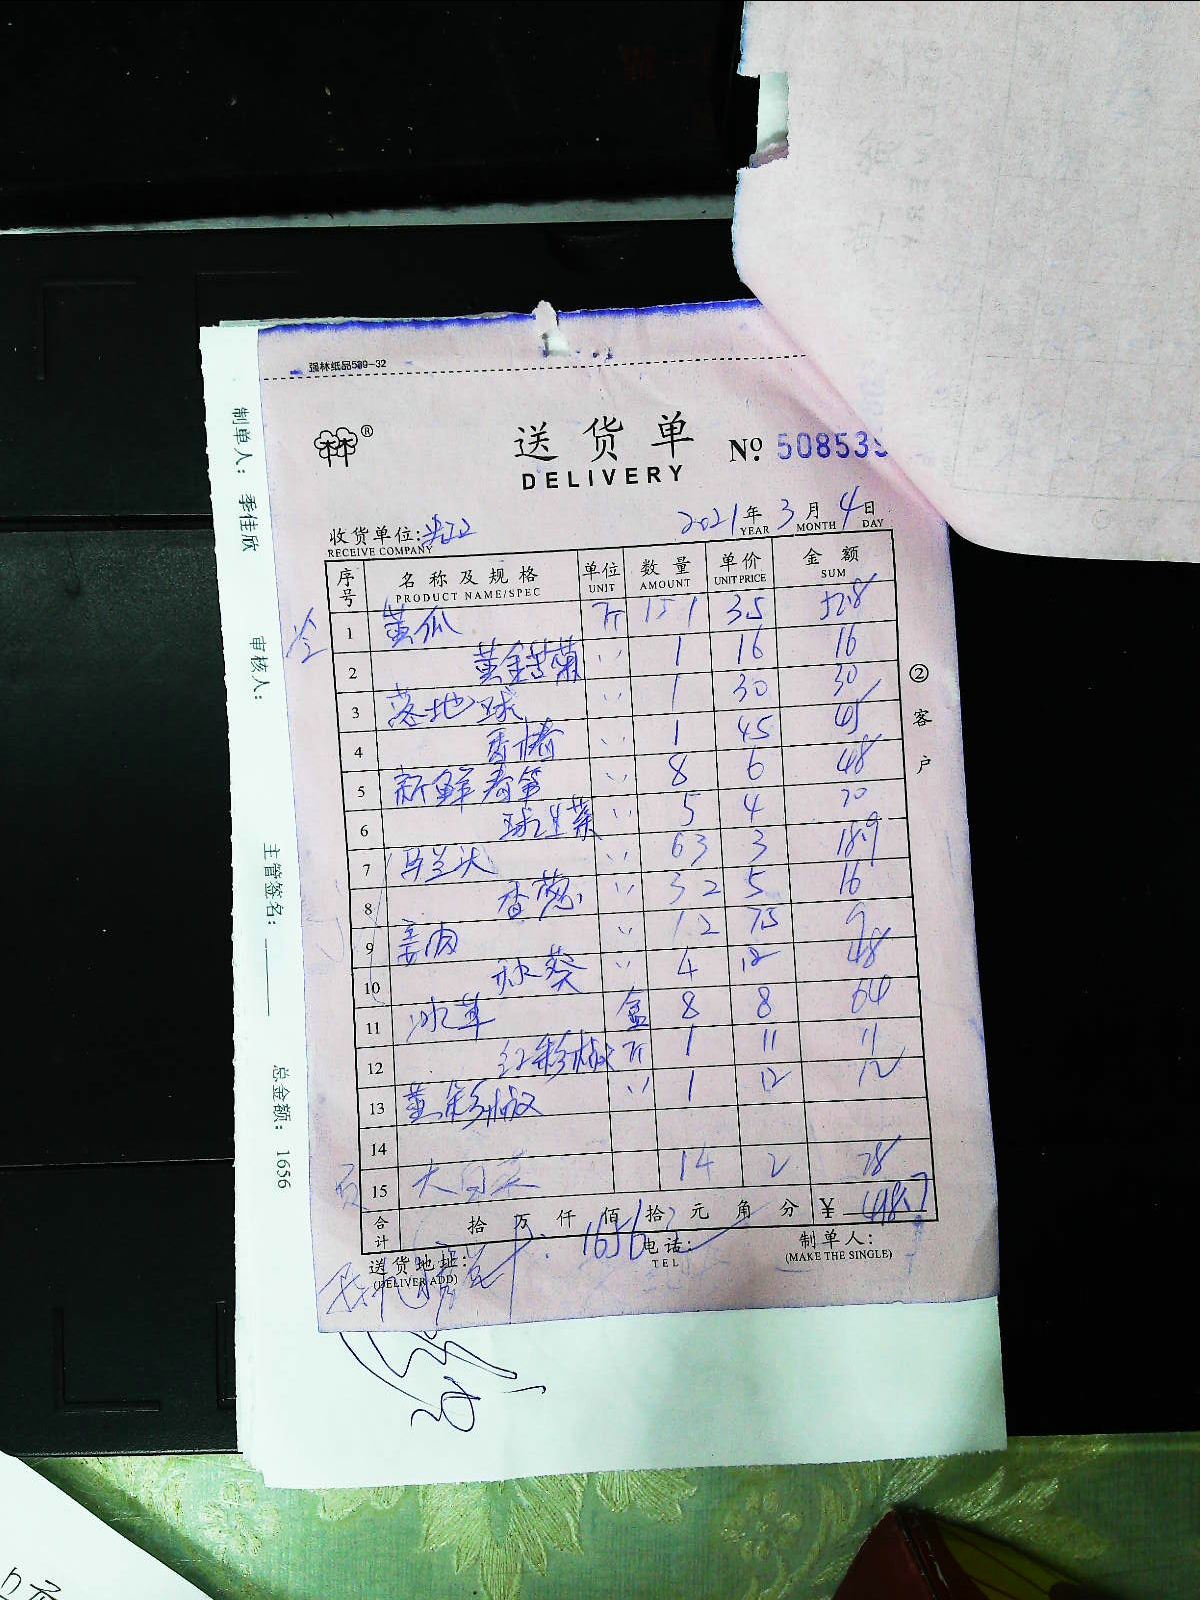 强林纸品589-32
林®
送货单
DELIVERY
No. 50853
收货单位:
RECEIVE COMPANY
2021年 3月 4日
YEAR MONTH DAY
序号 名称及规格 单位 数量 单价 金额
PRODUCT NAME/SPEC UNIT AMOUNT UNIT PRICE SUM
冷
1 黄瓜 斤 151 35 528
2 黄金甘菊 〃 1 16 16
3 落地球 〃 1 30 30
4 香椿 〃 1 45 45
5 新鲜春笋 〃 8 6 48
6 球生菜 〃 5 4 20
7 马兰头 〃 63 3 189
8 香葱 〃 32 5 16
9 姜肉 〃 12 75 9
10 秋葵 〃 4 12 48
11 冰草 盒 8 8 64
12 红彩椒 斤 1 11 11
13 黄彩椒 〃 1 12 12
14
15 大白菜 14 2 28
合计 拾 万 仟 佰 拾 元 角 分 ¥
1656
送货地址:
(DELIVER ADD)
电话:
TEL
制单人:
(MAKE THE SINGLE)
②客户
制单人: 季佳欣
审核人:
主管签名:
总金额: 1656